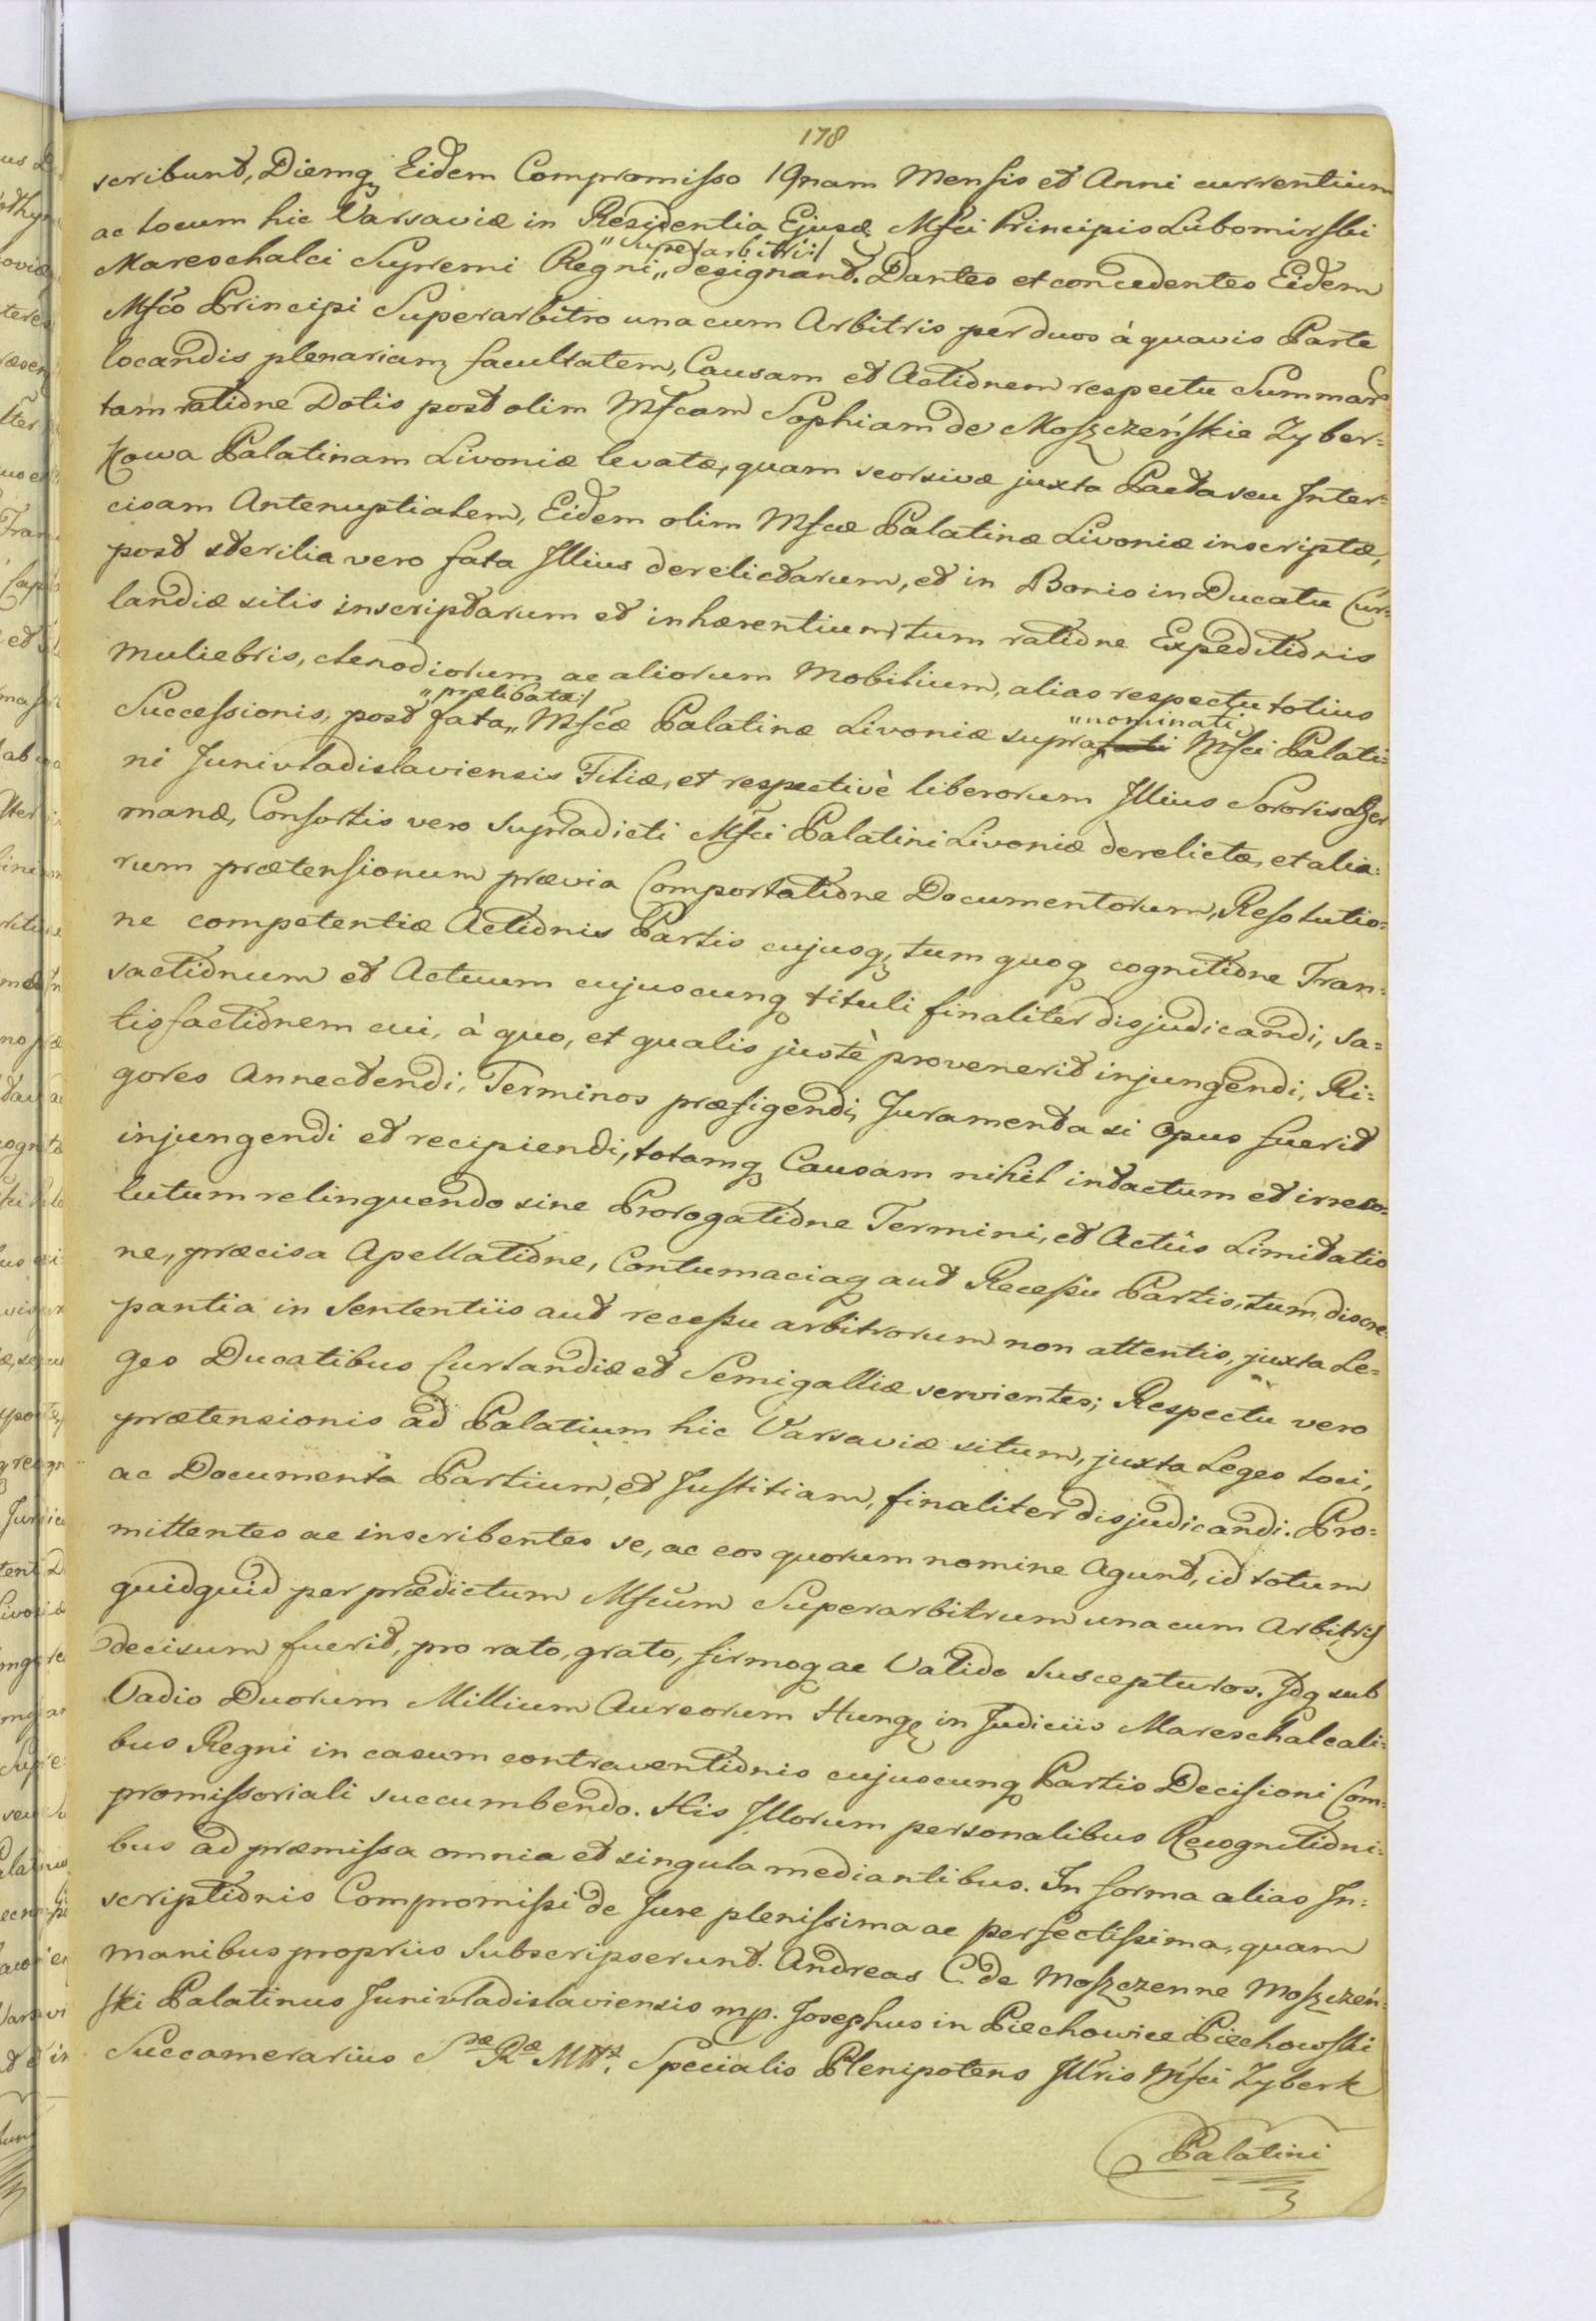 178
scribunt, Diemq Eidem Compromisso 19nam Mensis et Anni currentium
ac locum hic Varsaviæ in Residentia Ejusd Mfci Principis Lubomirski
Mareschalci Supremi Regni „ superarbitri :/ designant. Dantes et concedentes Eidem
Mfco Principi Superarbitro una cum Arbitris per duos à quavis Parte
locandis plenariam facultatem, Causam et Actionem respectu Summar
tam ratione Dotis post olim Mfcam Sophiam de Moszczeńskie Zyber=
kowa Palatinam Livoniæ levatæ, quam seorsivæ juxta Pacta seu Inter=
cisam Antenuptialem, Eidem olim Mfcæ Palatinæ Livoniæ inscriptæ,
post sterilia vero fata Illius derelictarum, et in Bonis in Ducatu Cur=
landiæ sitis inscriptarum et inhærentium, tum ratione Expeditionis
Muliebris, clenodiorum ac aliorum Mobilium, alias respectu totius
Successionis, post fata „ prælibatæ :/ Mfcæ Palatinæ Livoniæ supra „ nominati Mfci Palati=
ni Junivladislaviensis Filiæ, et respectivè liberorum Illius Sororis Ger
manæ, Consortis vero supradicti Mfci Palatini Livoniæ derelictæ, et alia=
rum prætensionum prævia Comportatione Documentorum, Resolutio=
ne competentiæ Actionis Partis cujusq, tum quoq cognitione Tran=
sactionum et Actuum cujuscunq tituli finaliter disjudicandi, Sa=
tisfactionem cui, à quo, et qualis justè provenerit injungendi, Ri=
gores Annectendi, Terminos præfigendi, Juramenta si opus fuerit
injungendi et recipiendi, totamq Causam nihil intactum et irreso=
lutum relinquendo sine Prorogatione Termini, et Actûs Limitatio
ne, præcisa Apellatione, Contumaciaq aut Recessu Partis, tum discre
pantia in Sententiis aut recessu arbitrorum non attentis, juxta Le=
ges Ducatibus Curlandiæ et Semigalliæ servientes; Respectu vero
prætensionis ad Palatium hic Varsaviæ situm, juxta Leges loci,
ac Documenta Partium, et Justitiam, finaliter disjudicandi. Pro=
mittentes ac inscribentes se, ac eos quorum nomine Agunt, id totum
quidquid per prædictum Mfcum Superarbitrum una cum Arbitris
decisum fuerit, pro rato, grato, firmoq ac Valido suscepturos. Idq sub
Vadio Duorum Millium Aureorum Hung in Judiciis Mareschalcali=
bus Regni in casum contraventionis cujuscunq Partis Decisioni Com=
promissoriali succumbendo. His Illorum personalibus Recognitioni=
bus ad præmissa omnia et singula mediantibus. In forma alias In=
scriptionis Compromissi de Jure plenissima ac perfectissima, quam
manibus propriis Subscripserunt. Andreas C. de Moszczenne Moszczeń=
ski Palatinus Junivladislaviensis mp. Josephus in Piechowice Piechowski
Succamerarius Sæ Ræ Mttis. Specialis Plenipotens Illris Mfci Zyberk
Palatini